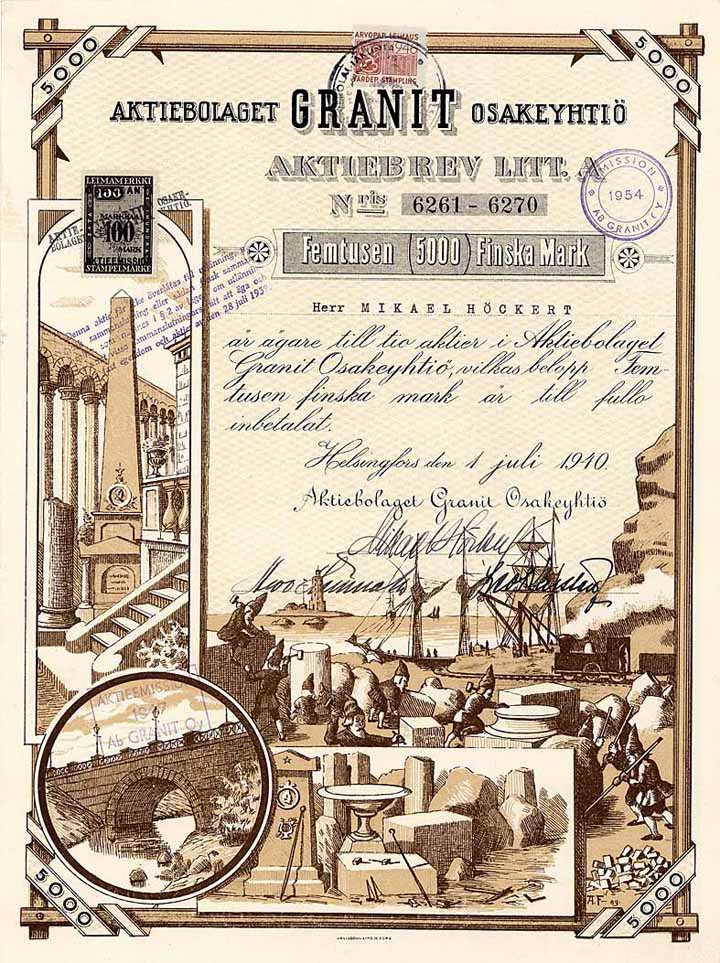 5000
5000
ARVOPAP. LEIMAUS
1948
VÄRDEP. STÄMPLING
AKTIEBOLAGET GRANIT OSAKEYHTIÖ
AKTIEBREV LITT. A
Nris 6261 - 6270
EMISSION
1954
AB GRANIT OY
LEIMAMERKKI
100
MARKKAA
100
MARK
AKTIEEMISSIO
STÄMPELMARKE
AKTIE-
BOLAGET
OSAKE-
YHTIÖ.
Femtusen (5000) Finska Mark
Denna aktie får icke överlåtas till utlänning,
28 juli 1939.
Herr MIKAEL HÖCKERT
är ägare till tio aktier i Aktiebolaget
Granit Osakeyhtiö, vilkas belopp Fem-
tusen finska mark är till fullo
inbetalat.
Helsingfors den 1 juli 1940.
Aktiebolaget Granit Osakeyhtiö
AKTIEEMISSION
1947
Ab GRANIT Oy
A.F.
5000
5000